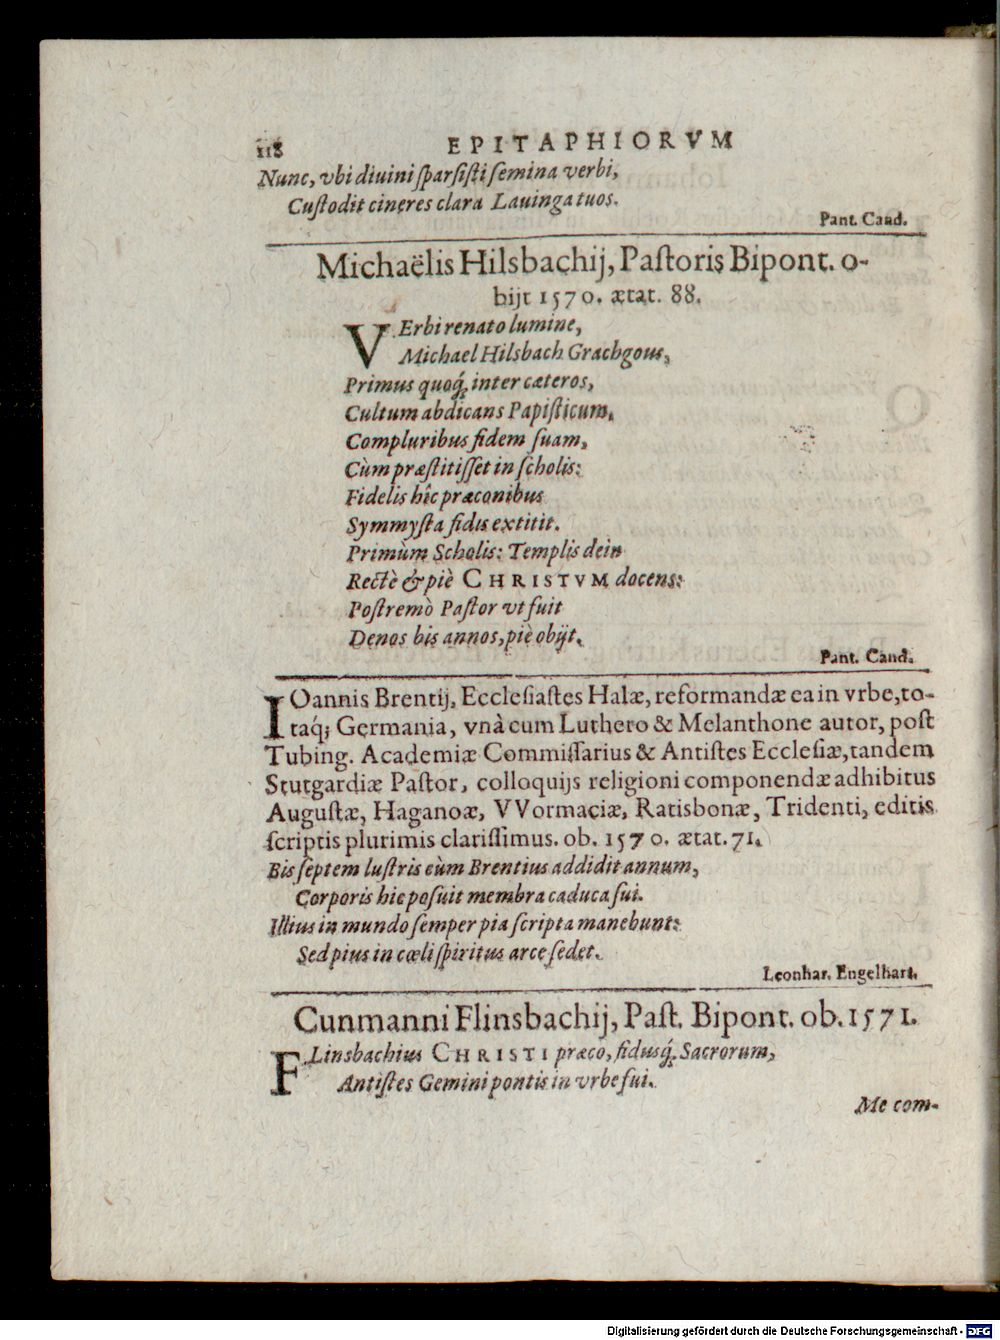 118 EPITAPHIORVM
Nunc, vbi diuini ſparſiſti ſemina verbi,
Cuſtodit cineres clara Lauinga tuos.
Pant. Cand.
Michaëlis Hilsbachij, Paſtoris Bipont. o-
bijt 1570. ætat. 88.
VErbi renato lumine,
Michael Hilsbach Grachgous,
Primus quoq́; inter cæteros,
Cultum abdicans Papiſticum,
Compluribus fidem ſuam,
Cùm præſtitiſſet in ſcholis:
Fidelis hîc præconibus
Symmyſta fidus extitit.
Primùm Scholis: Templis dein
Rectè & piè CHRISTVM docens:
Poſtremò Paſtor vt fuit
Denos bis annos, piè obijt.
Pant. Cand.
IOannis Brentij, Eccleſiaſtes Halæ, reformandæ ea in vrbe, to-
taq́; Germania, vnà cum Luthero & Melanthone autor, poſt
Tubing. Academiæ Commiſſarius & Antiſtes Eccleſiæ, tandem
Stutgardiæ Paſtor, colloquijs religioni componendæ adhibitus
Auguſtæ, Haganoæ, VVormaciæ, Ratisbonæ, Tridenti, editis
ſcriptis plurimis clariſſimus. ob. 1570. ætat. 71.
Bis ſeptem luſtris cùm Brentius addidit annum,
Corporis hic poſuit membra caduca ſui.
Illius in mundo ſemper pia ſcripta manebunt:
Sed pius in cœli ſpiritus arce ſedet.
Leonhar. Engelhart.
Cunmanni Flinsbachij, Paſt. Bipont. ob. 1571.
FLinsbachius CHRISTI præco, fidusq́; Sacrorum,
Antiſtes Gemini pontis in vrbe fui.
Me com-
Digitalisierung gefördert durch die Deutsche Forschungsgemeinschaft - DFG